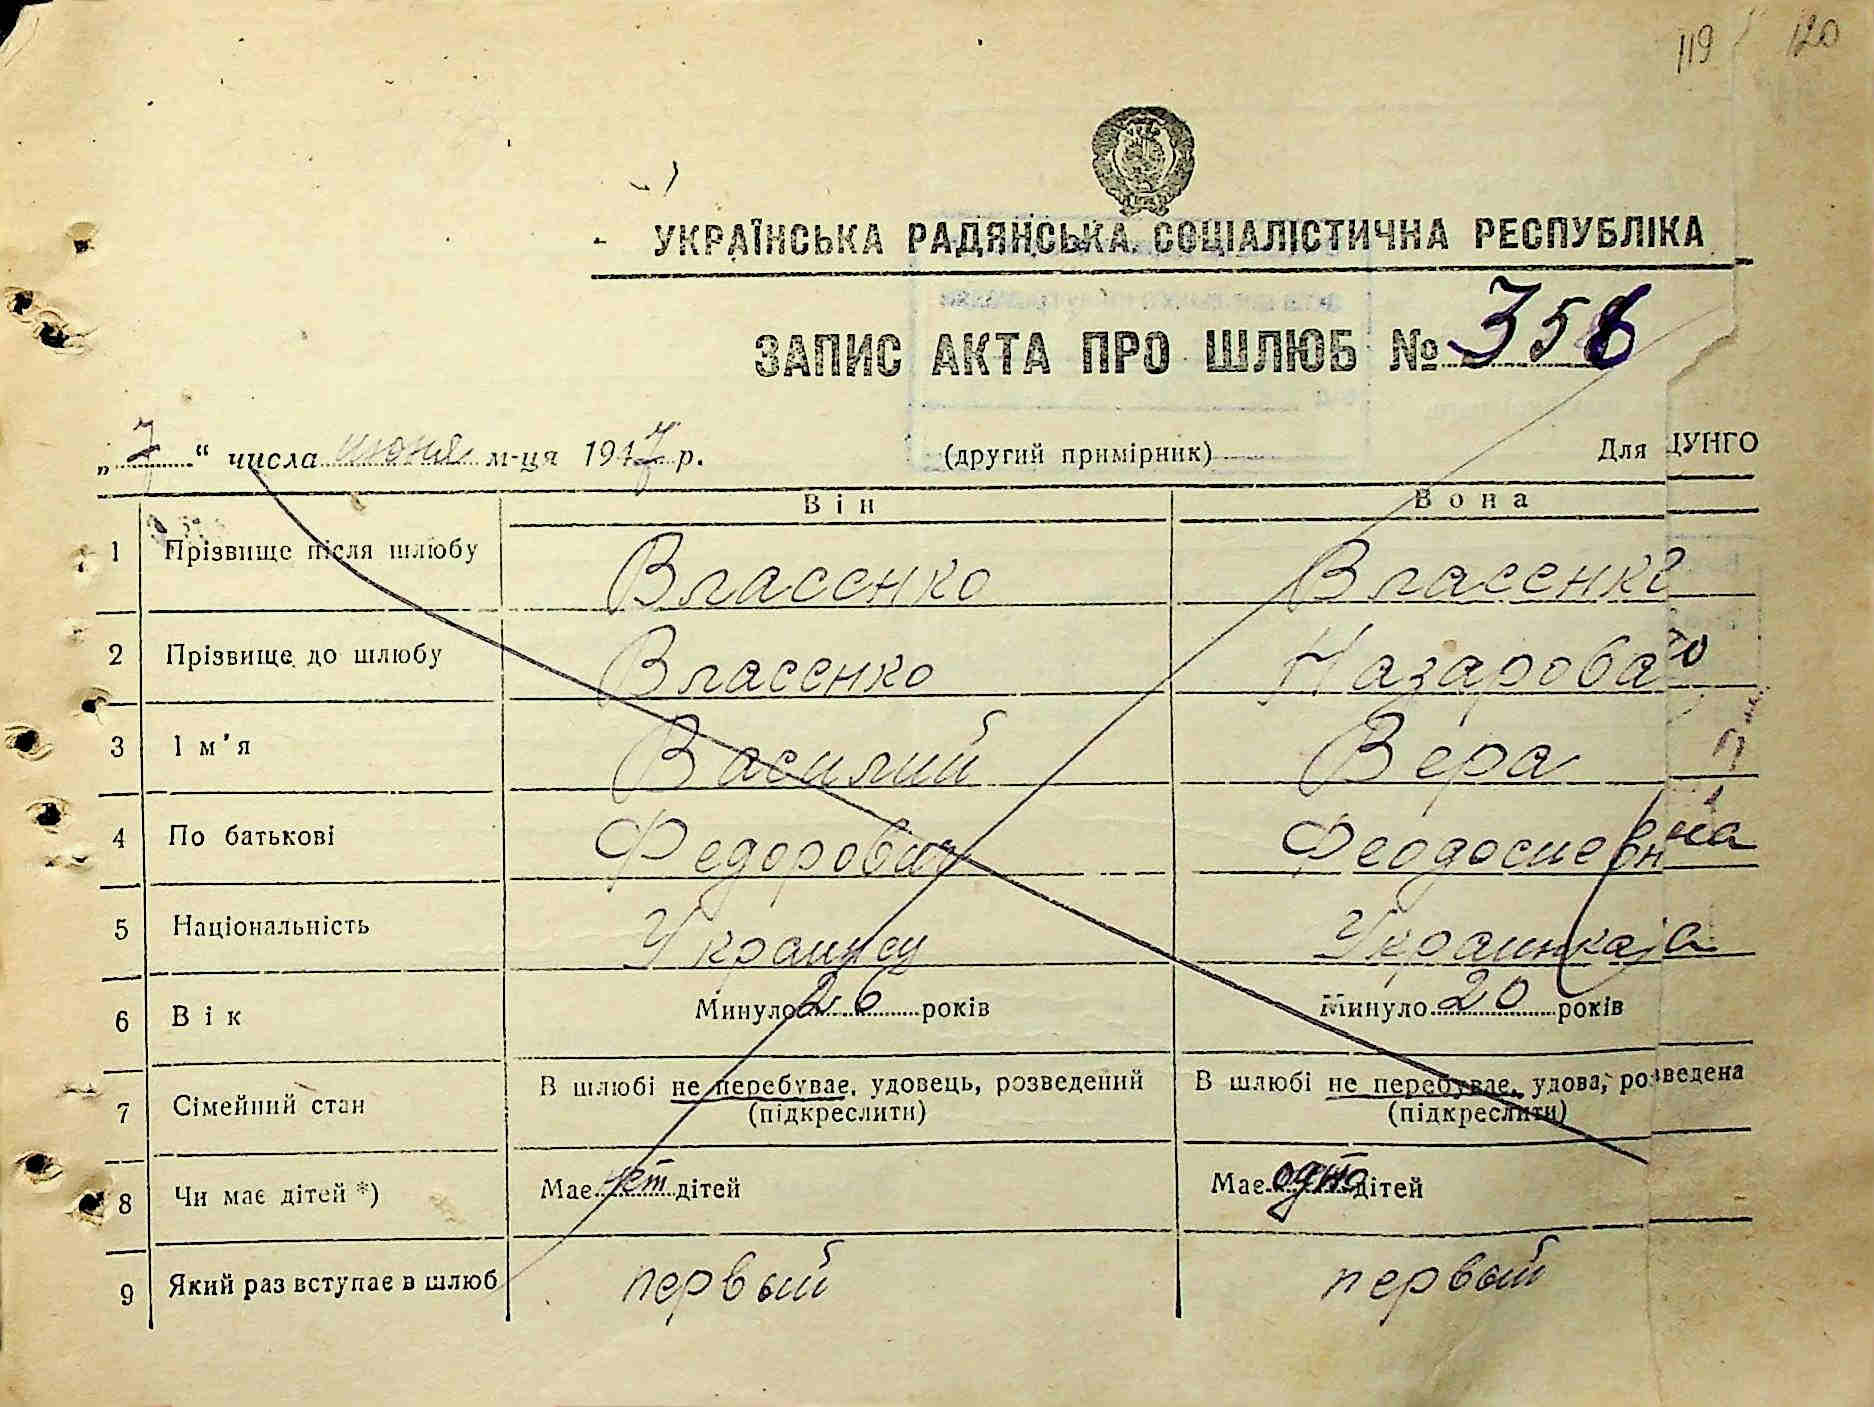 119 120
УКРАЇНСЬКА РАДЯНСЬКА СОЦІАЛІСТИЧНА РЕСПУБЛІКА
ЗАПИС АКТА ПРО ШЛЮБ № 358
„7“ числа июня м-ця 1947 р. (другий примірник) Для ЦУНГО
Він Вона
1 Прізвище після шлюбу Власенко Власенко
2 Прізвище до шлюбу Власенко Назарова
3 Ім'я Василий Вера
4 По батькові Федорович Феодосиевна
5 Національність Украинец Украинка
6 Вік Минуло 26 років Минуло 20 років
7 Сімейний стан В шлюбі не перебуває, удовець, розведений (підкреслити) В шлюбі не перебуває, удова, розведена (підкреслити)
8 Чи має дітей *) Має нет дітей Має одно дітей
9 Який раз вступає в шлюб первый первый